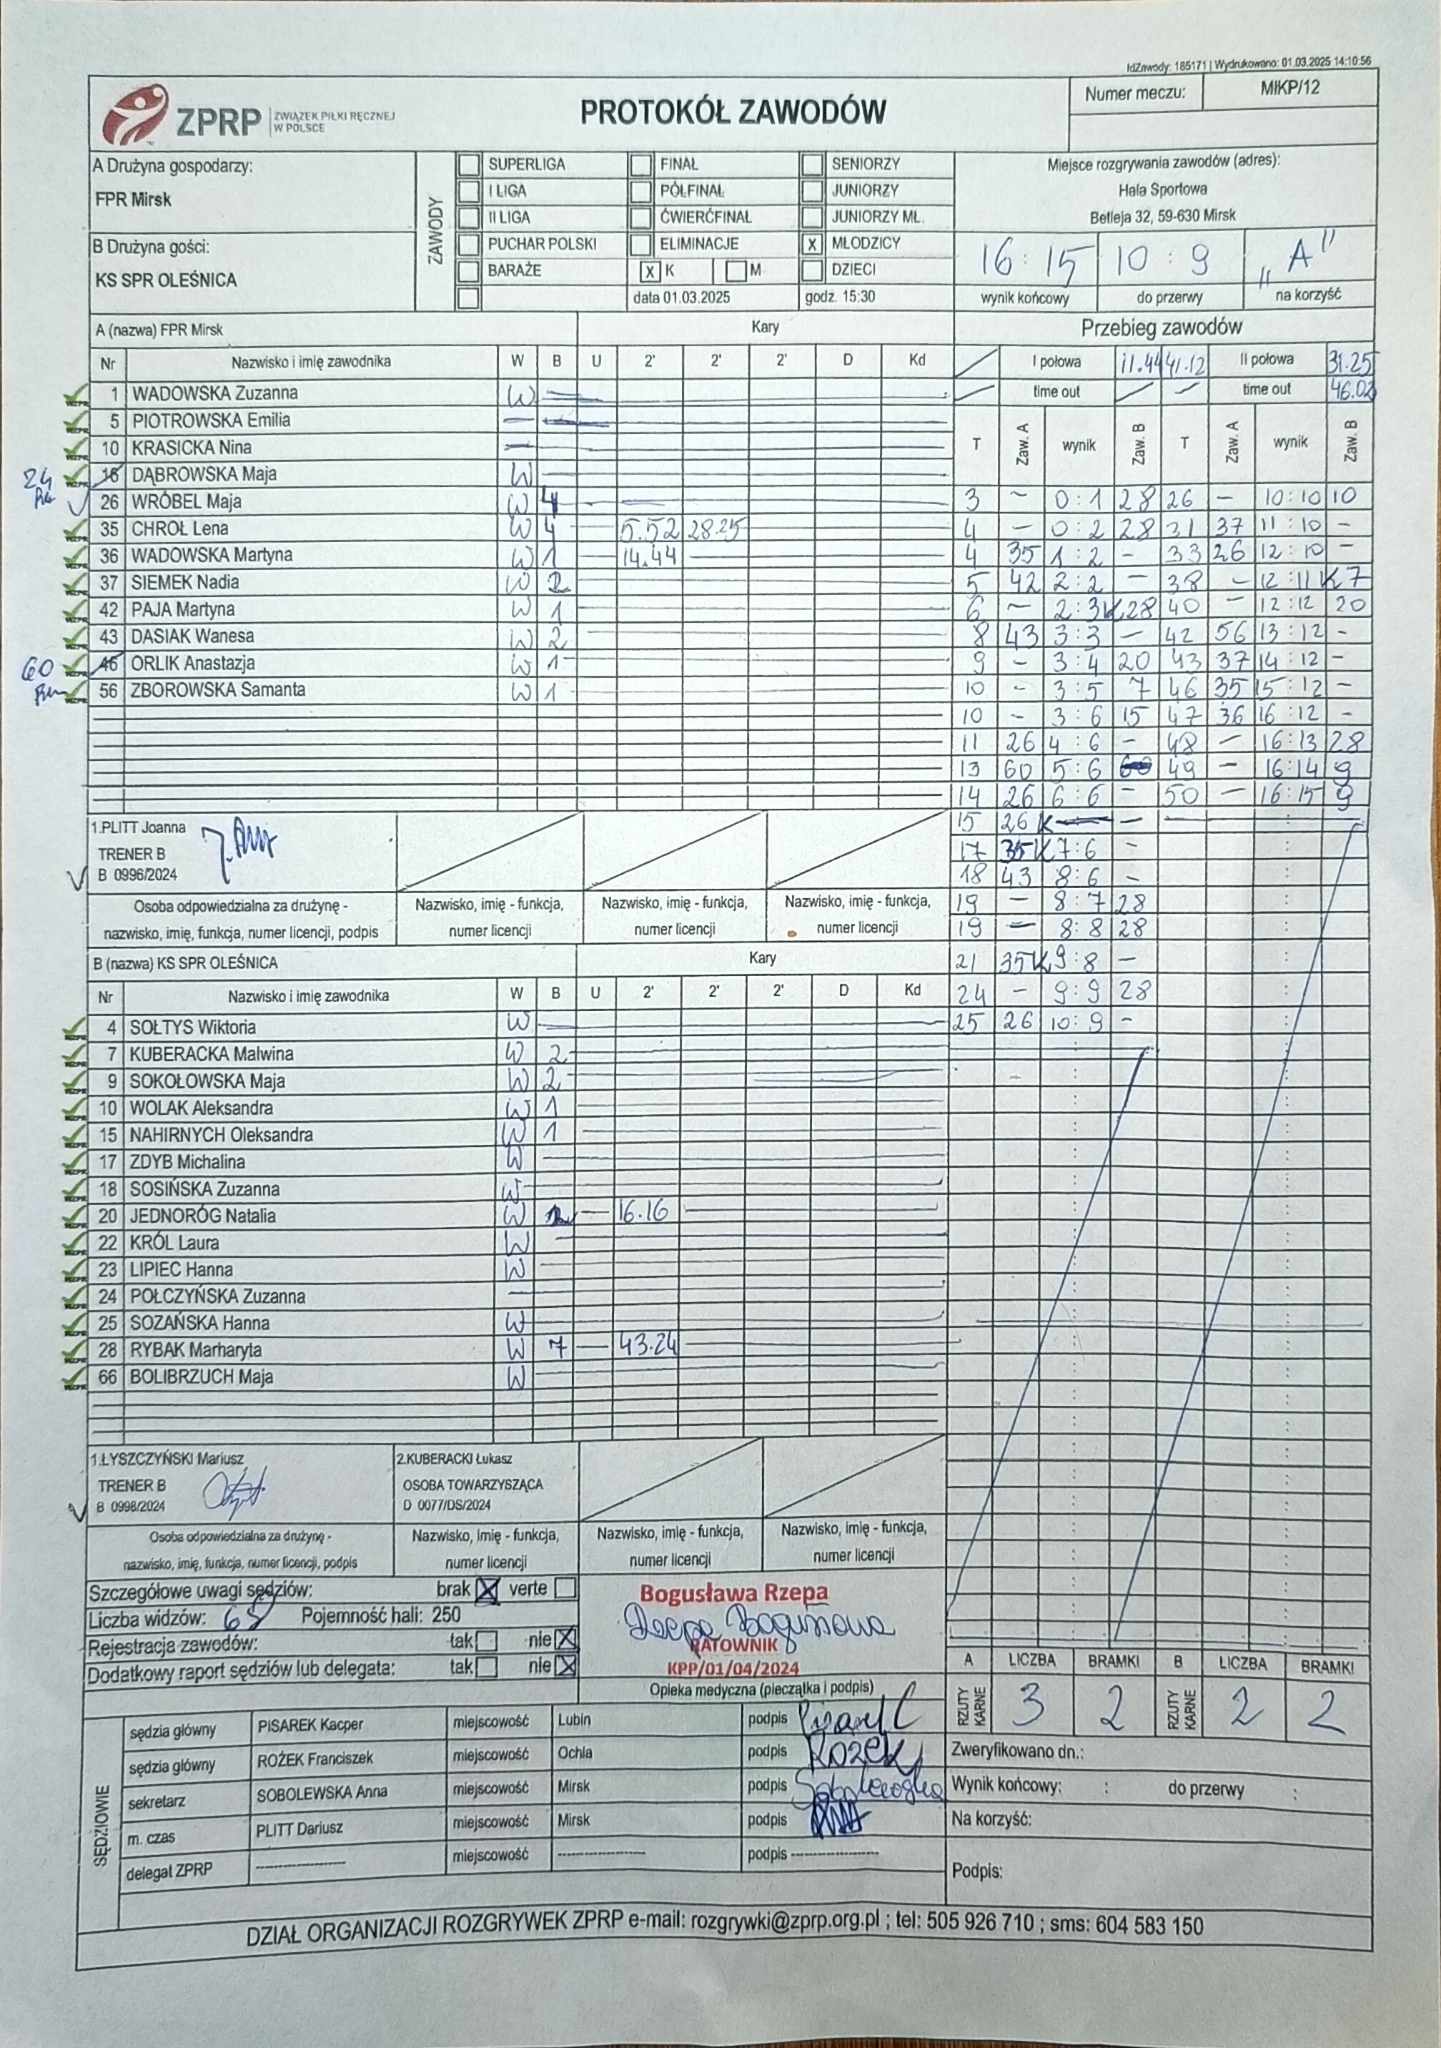 IdZawody: 185171 | Wydrukowano: 01.03.2025 14:10:56
ZPRP ZWIĄZEK PIŁKI RĘCZNEJ W POLSCE
PROTOKÓŁ ZAWODÓW
Numer meczu: MIKP/12
A Drużyna gospodarzy:
FPR Mirsk
B Drużyna gości:
KS SPR OLEŚNICA
ZAWODY
SUPERLIGA FINAŁ SENIORZY
I LIGA PÓŁFINAŁ JUNIORZY
II LIGA ĆWIERĆFINAŁ JUNIORZY MŁ.
PUCHAR POLSKI ELIMINACJE X MŁODZICY
BARAŻE X K M DZIECI
data 01.03.2025 godz. 15:30
Miejsce rozgrywania zawodów (adres):
Hala Sportowa
Betleja 32, 59-630 Mirsk
16:15 10:9 „A"
wynik końcowy do przerwy na korzyść
A (nazwa) FPR Mirsk Kary
Nr Nazwisko i imię zawodnika W B U 2' 2' 2' D Kd
1 WADOWSKA Zuzanna W
5 PIOTROWSKA Emilia
10 KRASICKA Nina
24 16 DĄBROWSKA Maja W
26 WRÓBEL Maja W 4
35 CHROŁ Lena W 4 5.52 28.25
36 WADOWSKA Martyna W 1 14.44
37 SIEMEK Nadia W 2
42 PAJA Martyna W 1
43 DASIAK Wanesa W 2
60 46 ORLIK Anastazja W 1
56 ZBOROWSKA Samanta W 1
1.PLITT Joanna
TRENER B
B 0996/2024
Osoba odpowiedzialna za drużynę -
nazwisko, imię, funkcja, numer licencji, podpis
Nazwisko, imię - funkcja,
numer licencji
Nazwisko, imię - funkcja,
numer licencji
Nazwisko, imię - funkcja,
numer licencji
B (nazwa) KS SPR OLEŚNICA Kary
Nr Nazwisko i imię zawodnika W B U 2' 2' 2' D Kd
4 SOŁTYS Wiktoria W
7 KUBERACKA Malwina W 2
9 SOKOŁOWSKA Maja W 2
10 WOLAK Aleksandra W 1
15 NAHIRNYCH Oleksandra W 1
17 ZDYB Michalina W
18 SOSIŃSKA Zuzanna W
20 JEDNORÓG Natalia W 2 - 16.16
22 KRÓL Laura W
23 LIPIEC Hanna W
24 POŁCZYŃSKA Zuzanna
25 SOZAŃSKA Hanna W
28 RYBAK Marharyta W 7 - 43.24
66 BOLIBRZUCH Maja W
1.ŁYSZCZYŃSKI Mariusz
TRENER B
B 0998/2024
2.KUBERACKI Łukasz
OSOBA TOWARZYSZĄCA
D 0077/DS/2024
Osoba odpowiedzialna za drużynę -
nazwisko, imię, funkcja, numer licencji, podpis
Nazwisko, imię - funkcja,
numer licencji
Nazwisko, imię - funkcja,
numer licencji
Nazwisko, imię - funkcja,
numer licencji
Przebieg zawodów
I połowa 11.44 41.12 II połowa 31.25
time out time out 46.02
T Zaw. A wynik Zaw. B T Zaw. A wynik Zaw. B
3 - 0:1 28 26 - 10:10 10
4 - 0:2 28 31 37 11:10 -
4 35 1:2 - 33 26 12:10 -
5 42 2:2 - 38 - 12:11 K7
6 - 2:3 K28 40 - 12:12 20
8 43 3:3 - 42 56 13:12 -
9 - 3:4 20 43 37 14:12 -
10 - 3:5 7 46 35 15:12 -
10 - 3:6 15 47 36 16:12 -
11 26 4:6 - 48 - 16:13 28
13 60 5:6 49 - 16:14 9
14 26 6:6 - 50 - 16:15 9
15 26 K -
17 35 K 7:6 -
18 43 8:6 -
19 - 8:7 28
19 - 8:8 28
21 35 K 9:8 -
24 - 9:9 28
25 26 10:9 -
Szczegółowe uwagi sędziów: brak X verte
Liczba widzów: 65 Pojemność hali: 250
Rejestracja zawodów: tak nie X
Dodatkowy raport sędziów lub delegata: tak nie X
Bogusława Rzepa
Rzepa Bogusława
RATOWNIK
KPP/01/04/2024
Opieka medyczna (pieczątka i podpis)
A LICZBA BRAMKI B LICZBA BRAMKI
RZUTY KARNE 3 2 RZUTY KARNE 2 2
SĘDZIOWIE
sędzia główny PISAREK Kacper miejscowość Lubin podpis
sędzia główny ROŻEK Franciszek miejscowość Ochla podpis Rożek
sekretarz SOBOLEWSKA Anna miejscowość Mirsk podpis Sobolewska
m. czas PLITT Dariusz miejscowość Mirsk podpis
delegat ZPRP -------------------- miejscowość -------------------- podpis --------------------
Zweryfikowano dn.:
Wynik końcowy: : do przerwy :
Na korzyść:
Podpis:
DZIAŁ ORGANIZACJI ROZGRYWEK ZPRP e-mail: rozgrywki@zprp.org.pl ; tel: 505 926 710 ; sms: 604 583 150